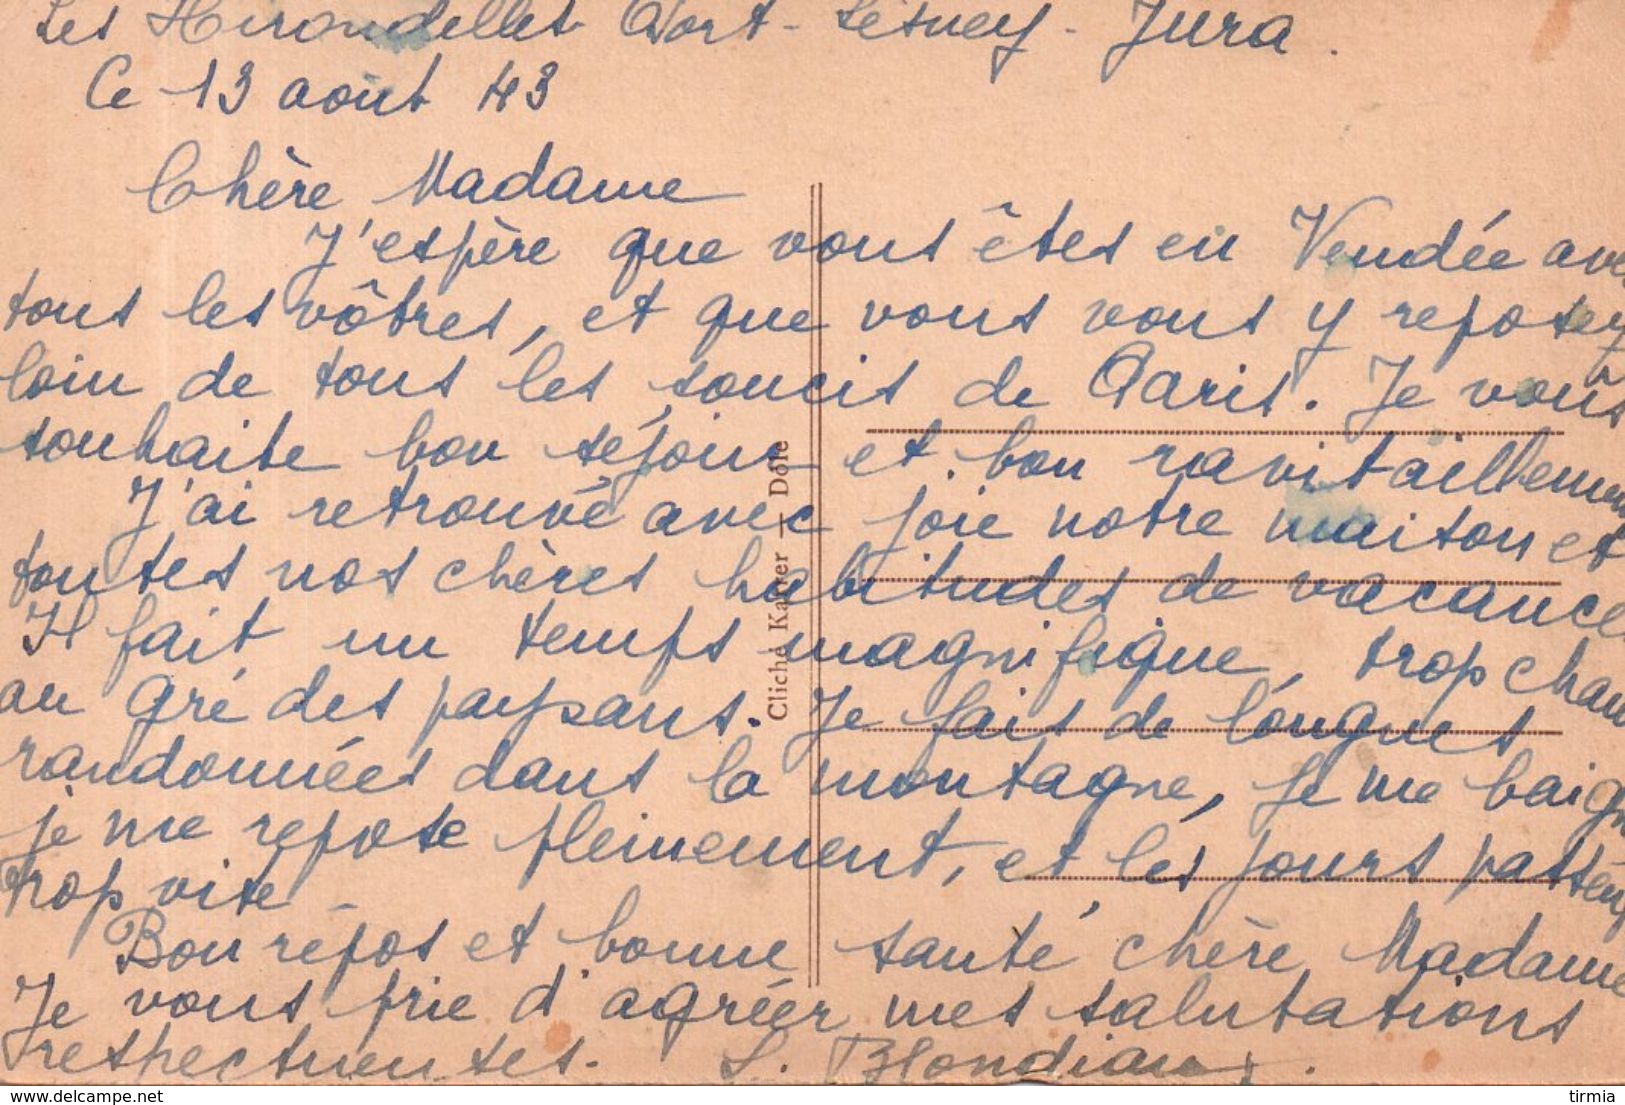 Les Hirondelles Port-Lesney - Jura.
Ce 13 août 43
Chère Madame
J'espère que vous êtes en Vendée avec
tous les vôtres, et que vous vous y reposez
loin de tous les soucis de Paris. Je vous
souhaite bon séjour et bon ravitaillement
J'ai retrouvé avec joie notre maison et
toutes nos chères habitudes de vacances
Il fait un temps magnifique, trop chaud
au gré des paysans. Je fais de longues
randonnées dans la montagne, je me baigne
je me repose pleinement, et les jours passent
trop vite.
Bon repos et bonne santé, chère Madame
Je vous prie d'agréer mes salutations
respectueuses. L. Blondiaux.
Cliché Karrer — Dole
tirmia